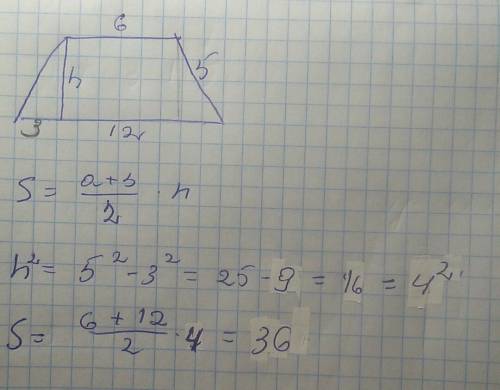 6
h 5
3 12
S = \frac{a+b}{2} · h
h² = 5² - 3² = 25 - 9 = 16 = 4²
S = \frac{6+12}{2} · 4 = 36